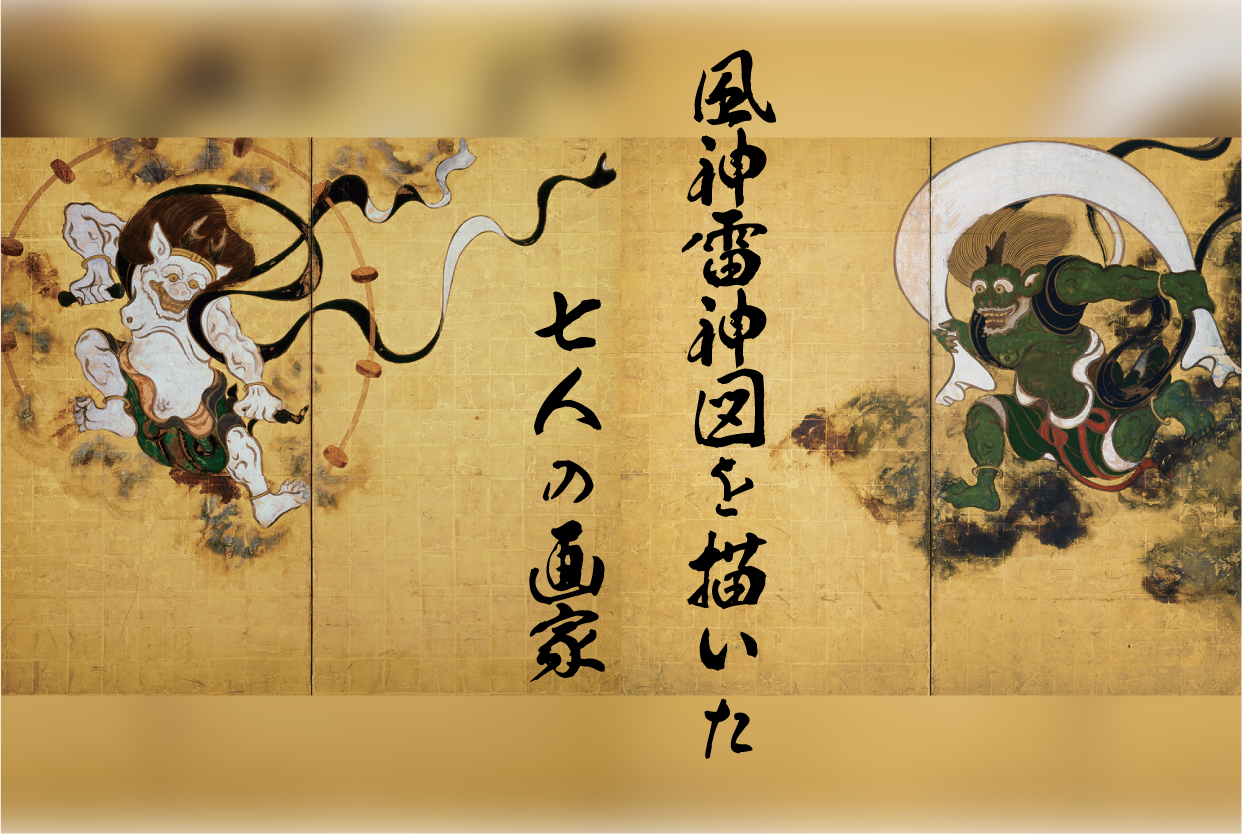 風神雷神図を描いた
七人の画家